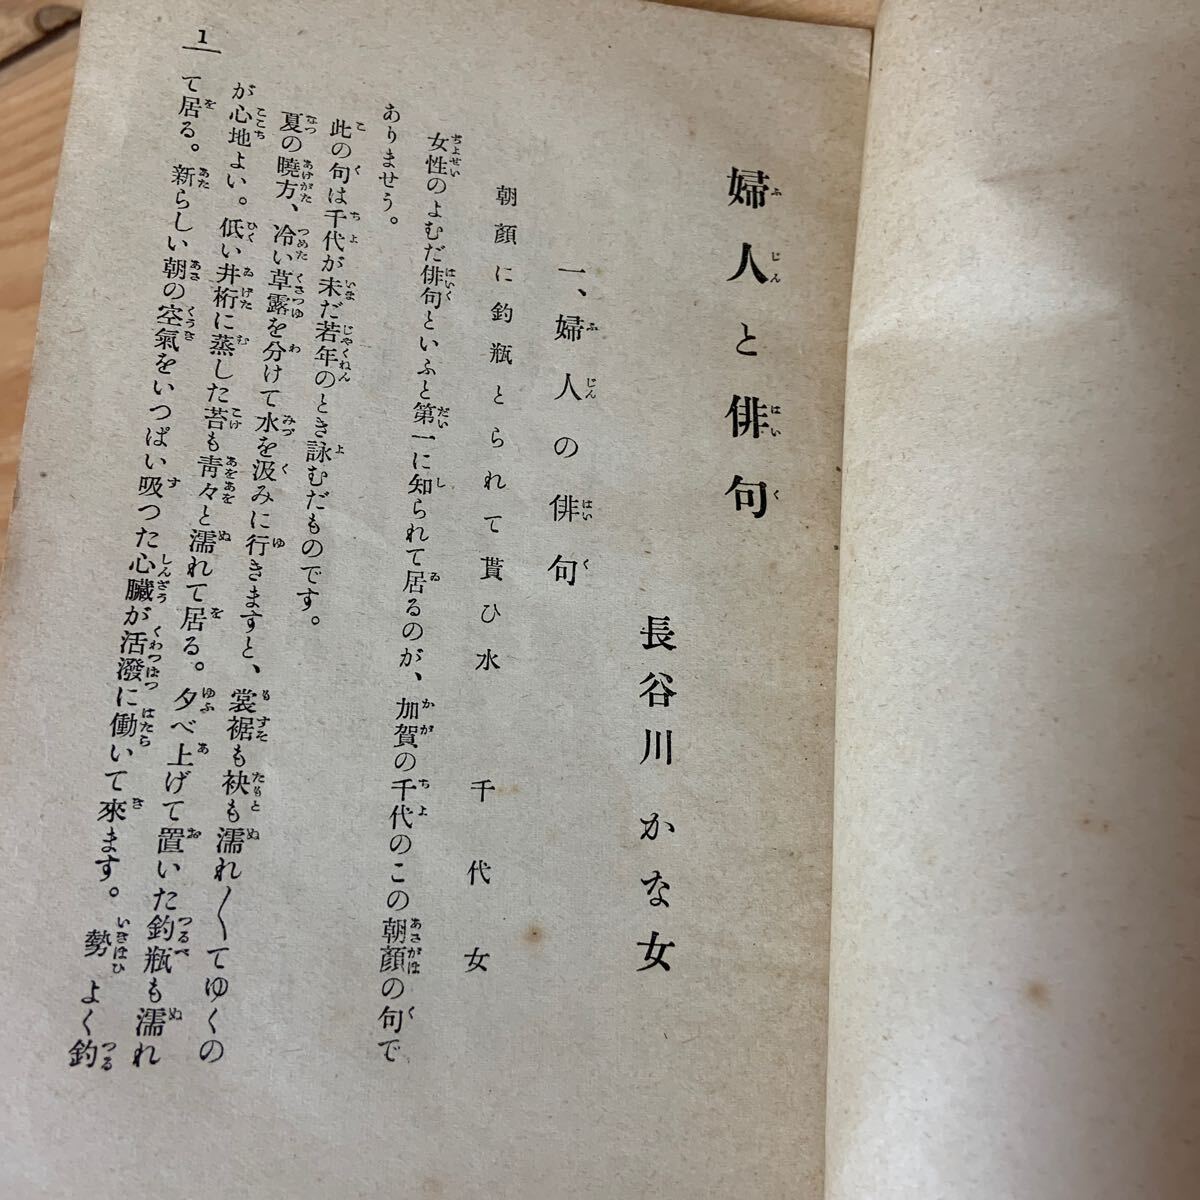 婦人と俳句
長谷川かな女
一、婦人の俳句
朝顔に釣瓶とられて貰ひ水 千代女
女性のよむだ俳句といふと第一に知られて居るのが、加賀の千代のこの朝顔の句で
ありませう。
此の句は千代が未だ若年のとき詠むだものです。
夏の曉方、冷い草露を分けて水を汲みに行きますと、裳裾も袂も濡れ〱てゆくの
が心地よい。低い井桁に蒸した苔も靑々と濡れて居る。夕べ上げて置いた釣瓶も濡れ
て居る。新らしい朝の空氣をいつぱい吸つた心臟が活潑に働いて來ます。勢よく釣
1